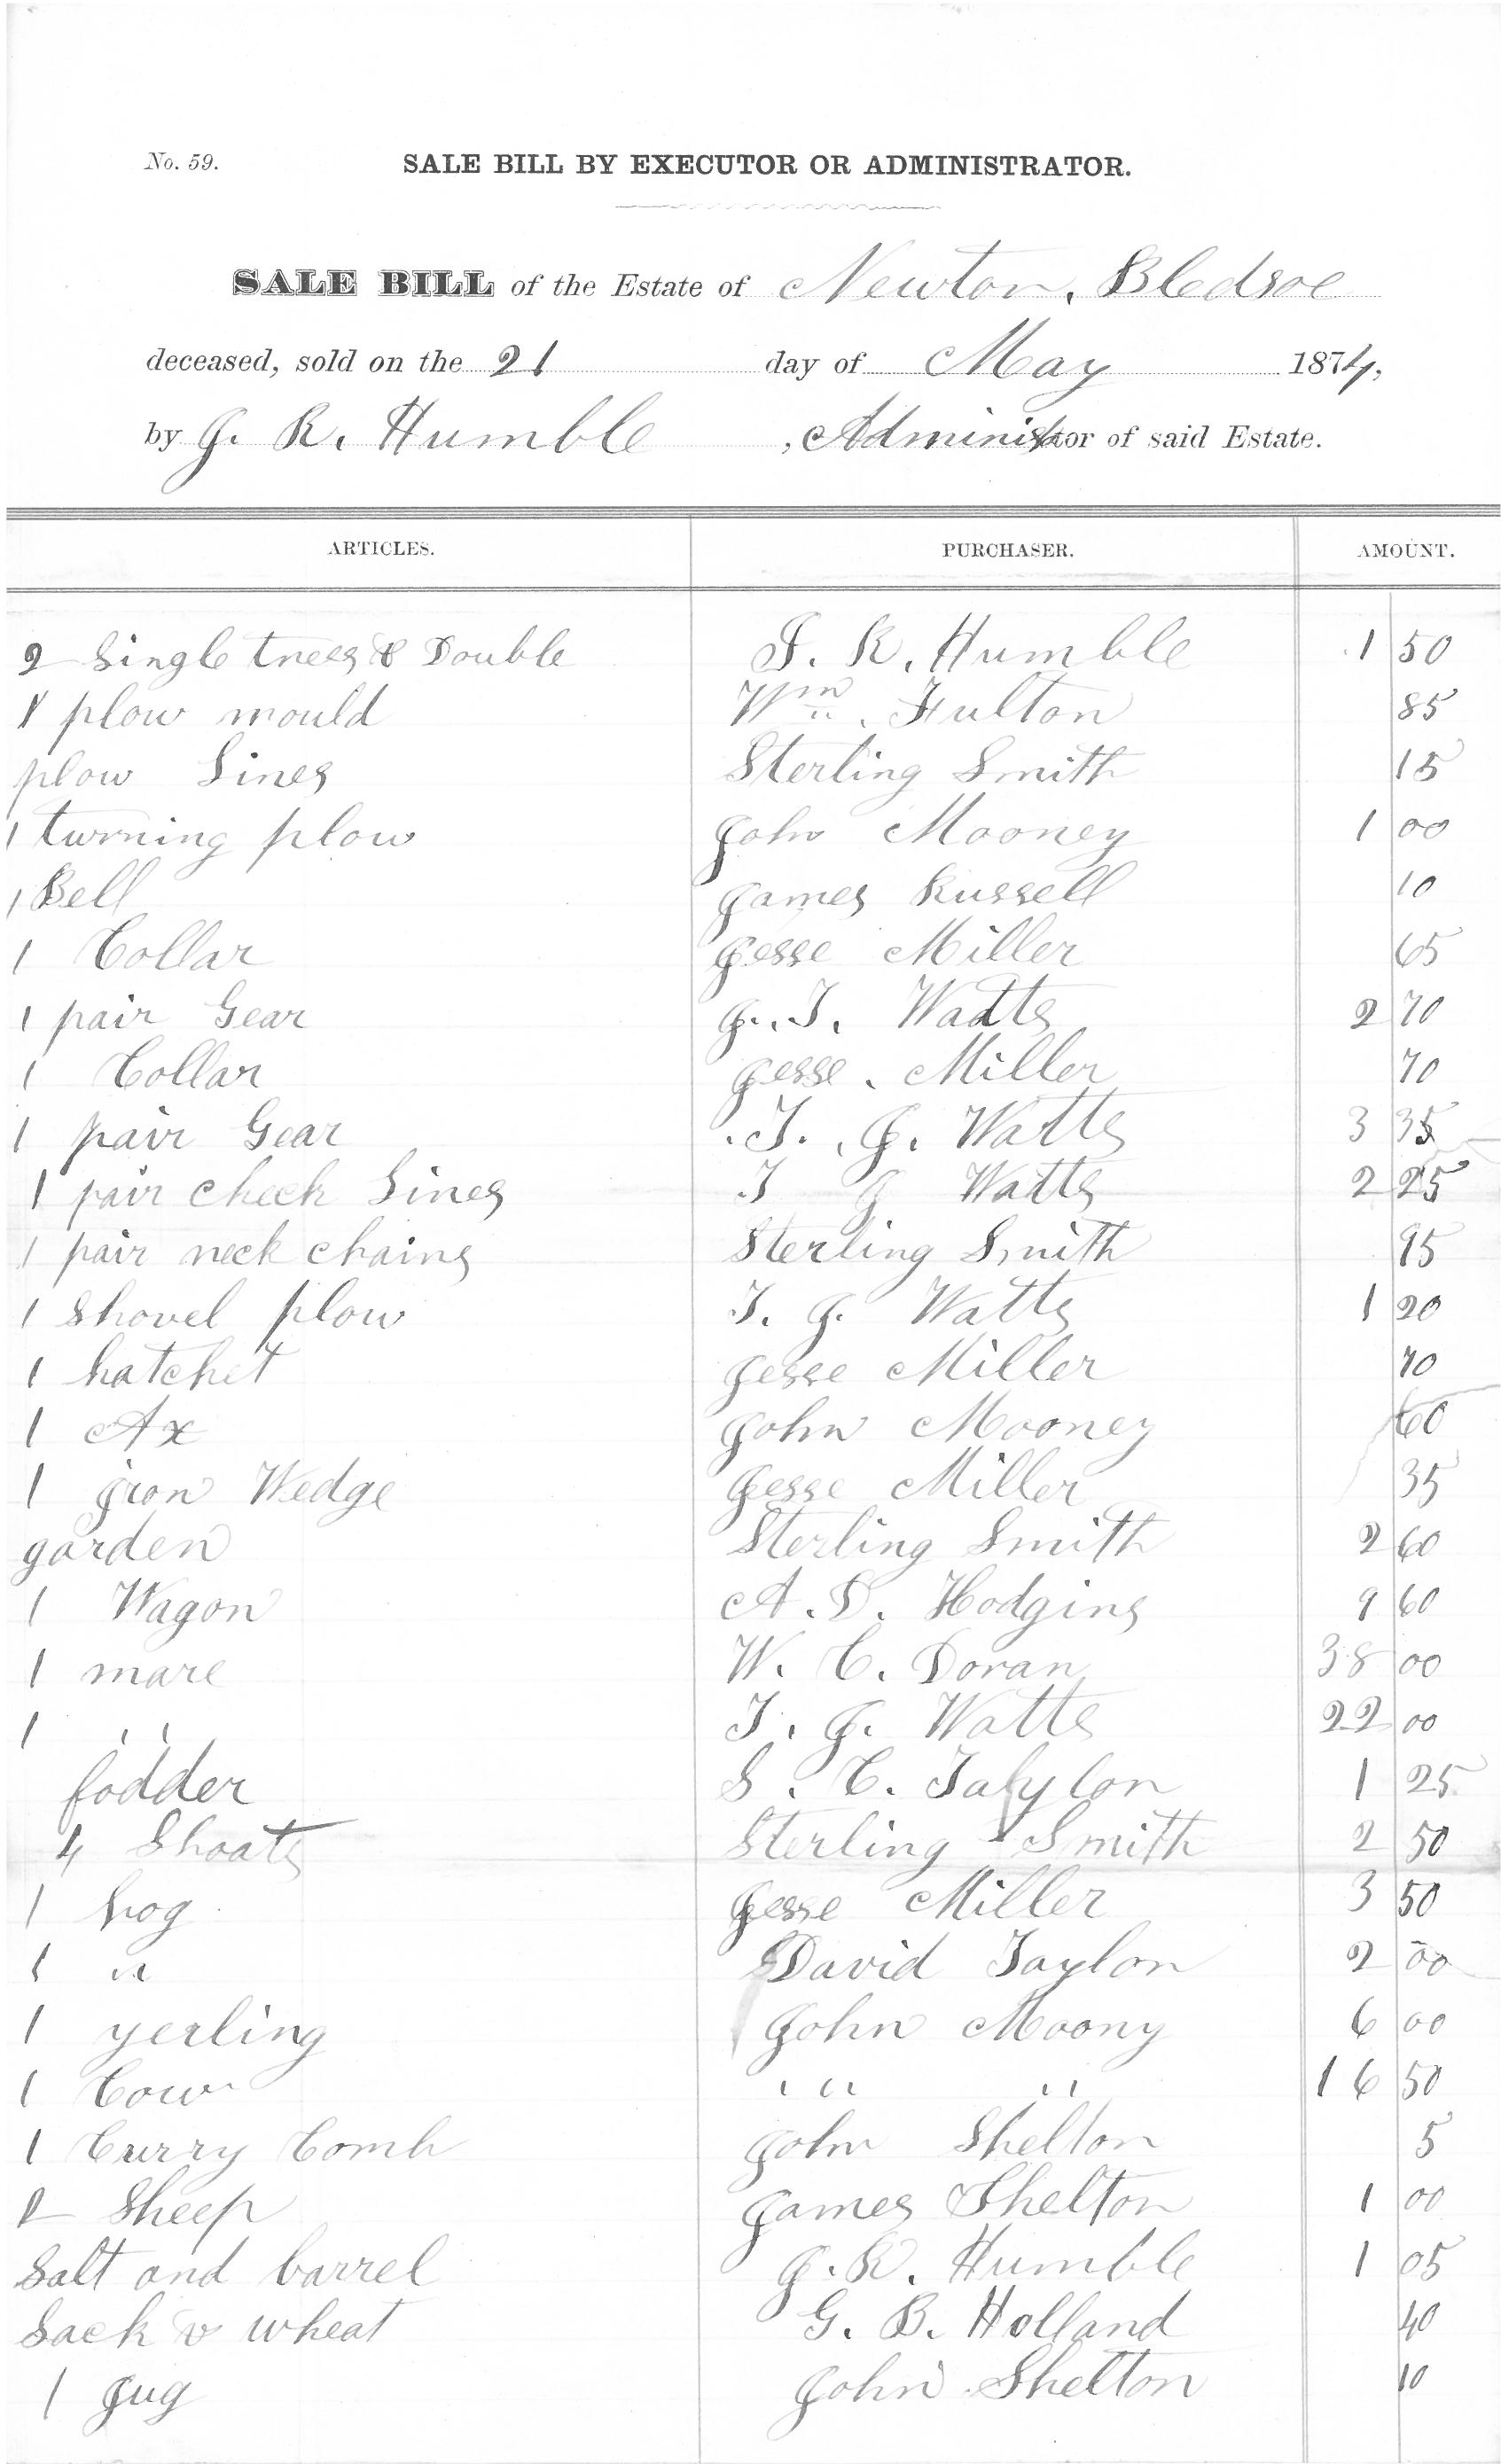 No. 59. SALE BILL BY EXECUTOR OR ADMINISTRATOR.
SALE BILL of the Estate of Newton. Bledsoe
deceased, sold on the 21 day of May 1874,
by J. R. Humble, Administor of said Estate.
ARTICLES. PURCHASER. AMOUNT.
2 Single trees & Double J. R. Humble 1 50
1 plow mould Wm. Fulton 85
plow Lines Sterling Smith 15
1 turning plow John Mooney 1 00
1 Bell James Russell 10
1 Collar Jesse Miller 65
1 pair Gear J. T. Watts 2 70
1 Collar Jesse. Miller 70
1 pair Gear T. J. Watts 3 35
1 pair check Lines T J Watts 2 25
1 pair neck chains Sterling Smith 95
1 Shovel plow T. J. Watts 1 20
1 hatchet Jesse Miller 70
1 Ax John Mooney 60
1 Jron Wedge Jesse Miller 35
garden Sterling Smith 2 60
1 Wagon A. D. Hodgins 9 60
1 mare W. C. Doran 38 00
1 " T. J. Watts 22 00
fodder S. C. Talylor 1 25
4 Shoats Sterling Smith 2 50
1 hog Jesse Miller 3 50
1 " David Taylor 2 00
1 yerling John Moony 6 00
1 Cow " " 16 50
1 Curry Comb John Shelton 5
2 Sheep James Shelton 1 00
Salt and barrel J. R. Humble 1 05
Sack & wheat G. B. Holland 40
1 Jug John Shelton 10